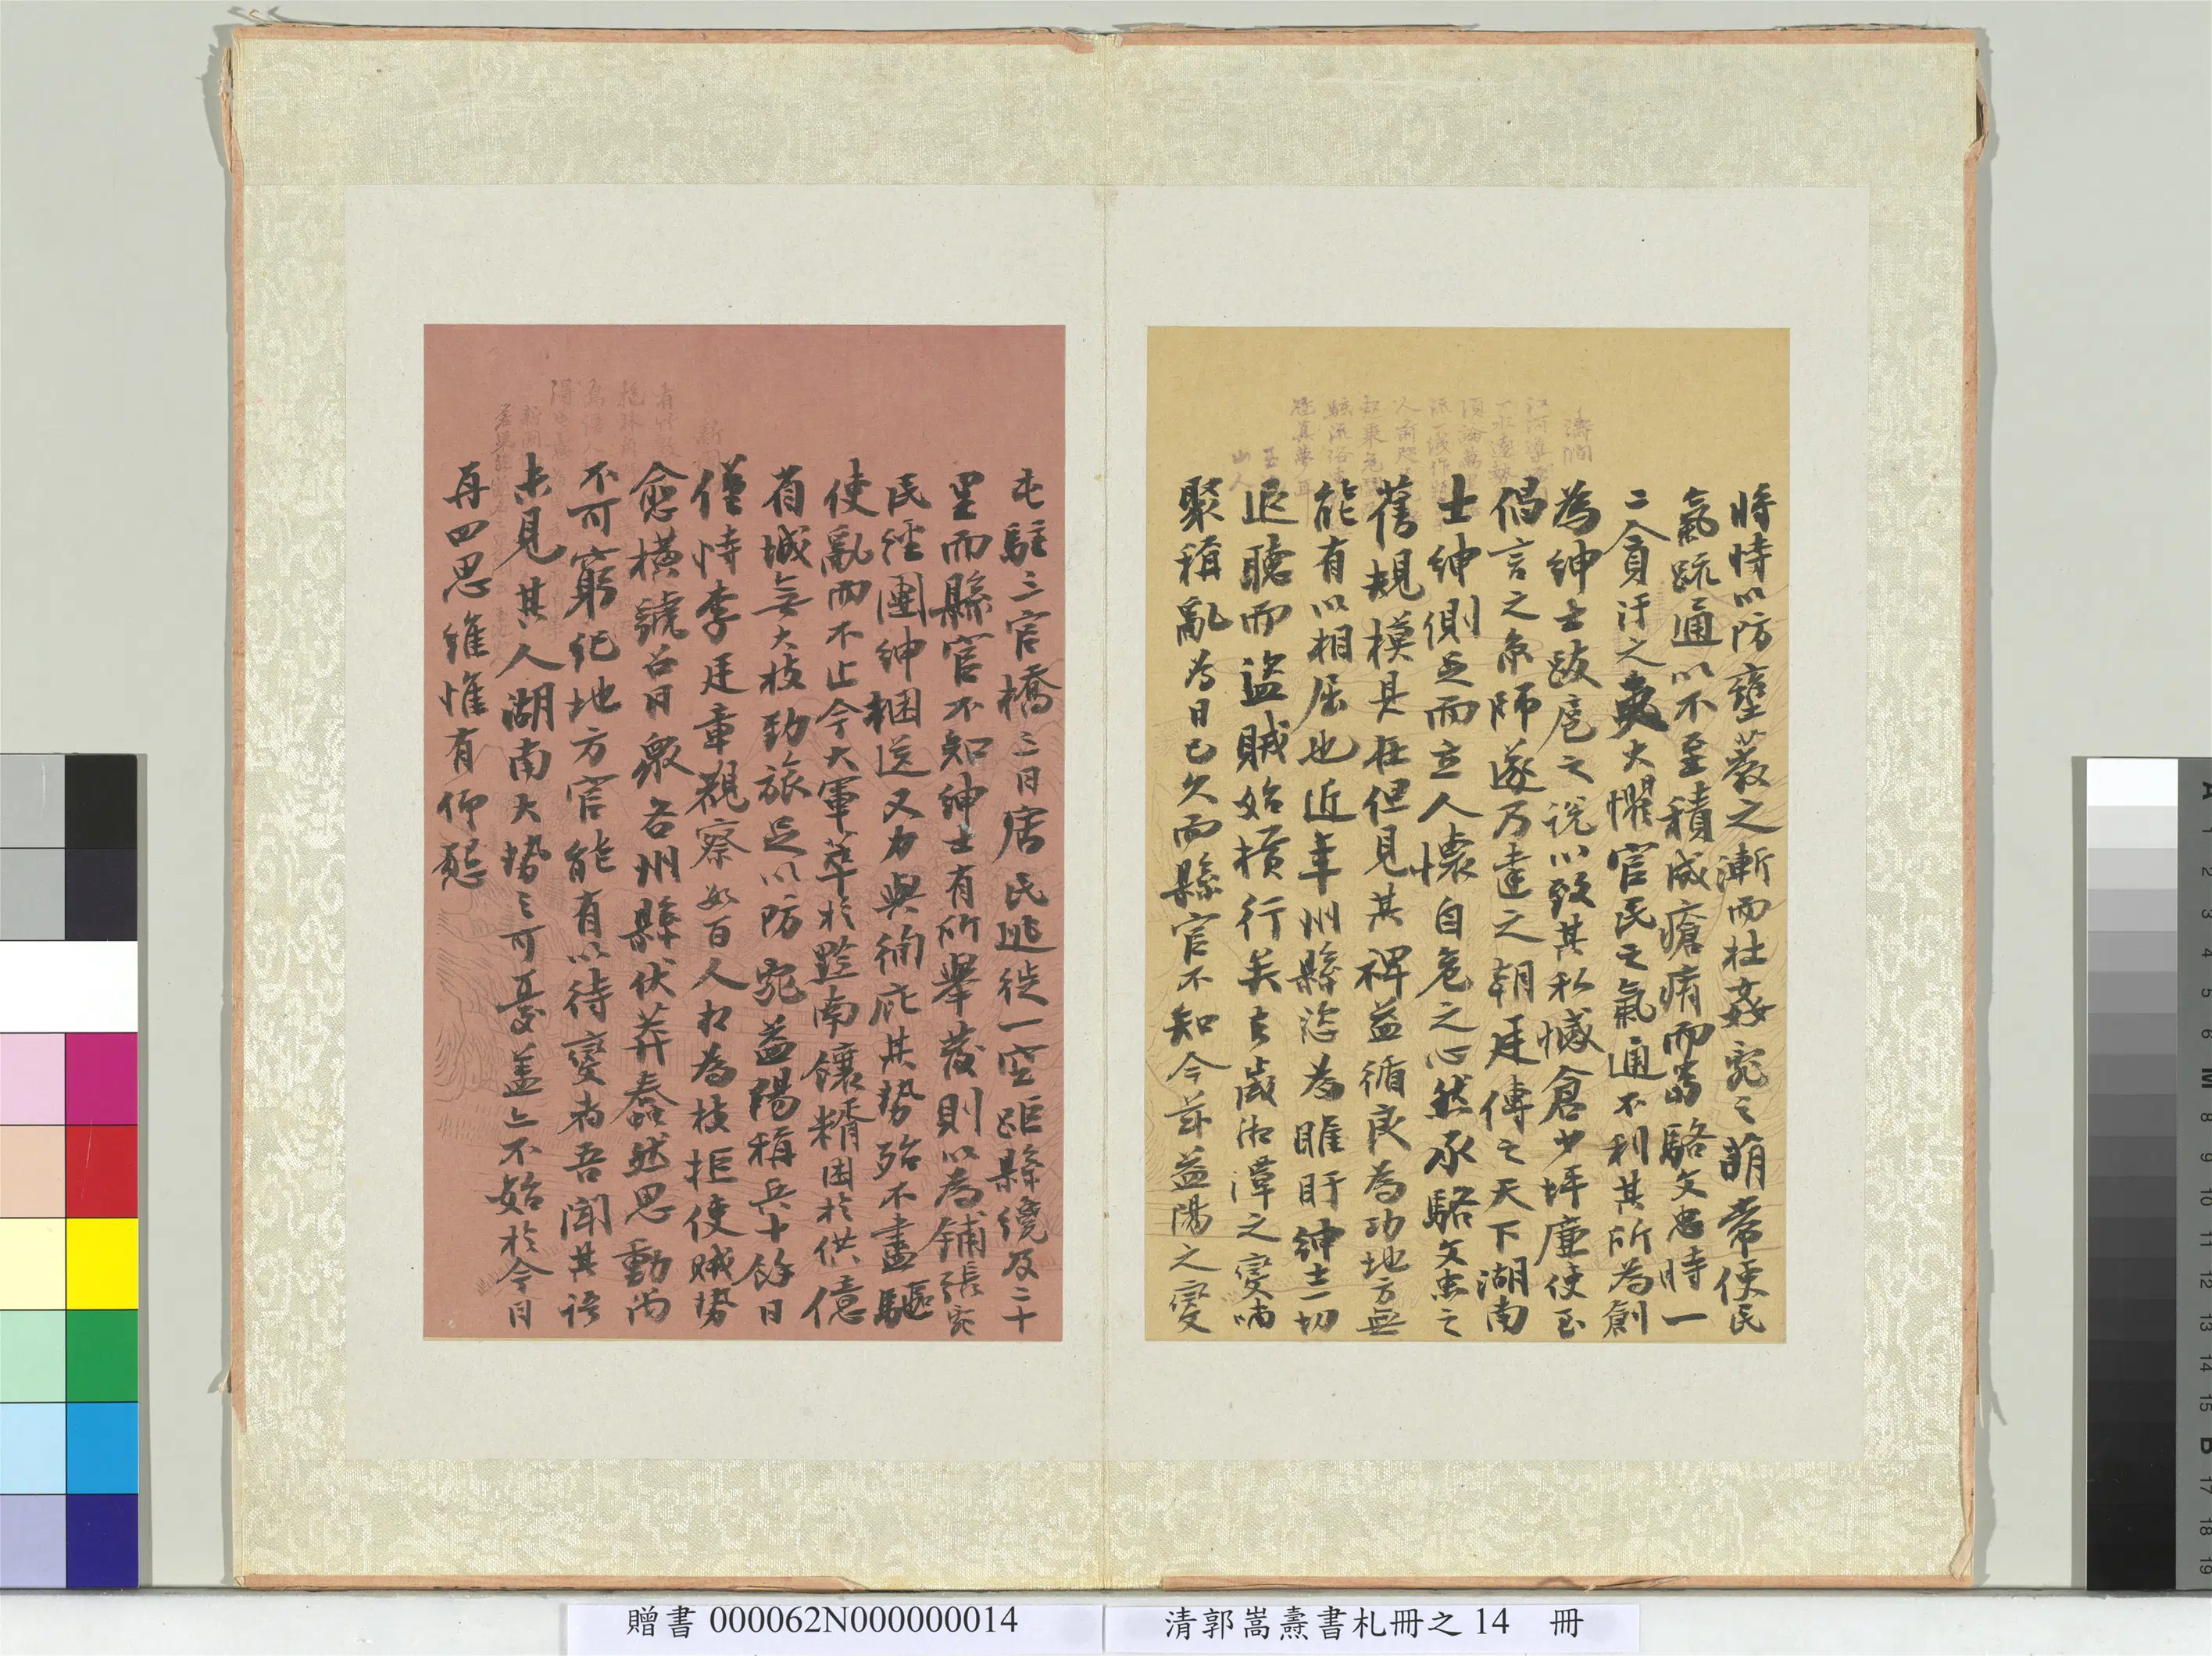 將恃以防壅蔽之漸而杜姦宄之萌常使民
氣疏通以不至積成瘡痏而當駱文忠時一
二貪汙之吏大懼官民之氣通不利其所為創
為紳士跋扈之說以致其私憾倉少坪廉使至
倡言之京師遂乃達之朝廷傳之天下湖南
士紳側足而立人懷自危之心然承駱文忠之
舊規模具在但見其裨益循良為功地方無
能有以相屈也近年州縣恣為睢盱紳士一切
退聽而盜賊始橫行矣去歲湘潭之變嘯
聚稱亂為日已久而縣官不知今茲益陽之變
屯駐三官橋三日居民逃徙一空距縣纔及二十
里而縣官不知紳士有所舉發則以為鋪張宄
民經團紳捆送又力與彌庇其勢殆不盡驅
使亂而不止今大軍萃於黔南饟糈困於供億
省城無大枝勁旅足以防宄益陽稱兵十餘日
僅恃李廷章觀察數百人相為枝拒使賊勢
愈橫號召日眾各州縣伏莽蠢然思動尚
不可窮紀地方官能有以待變者吾聞其語
未見其人湖南大勢之可憂蓋亦不始於今日
再四思維惟有仰懇
贈書 000062N000000014
清郭嵩燾書札冊之 14 冊